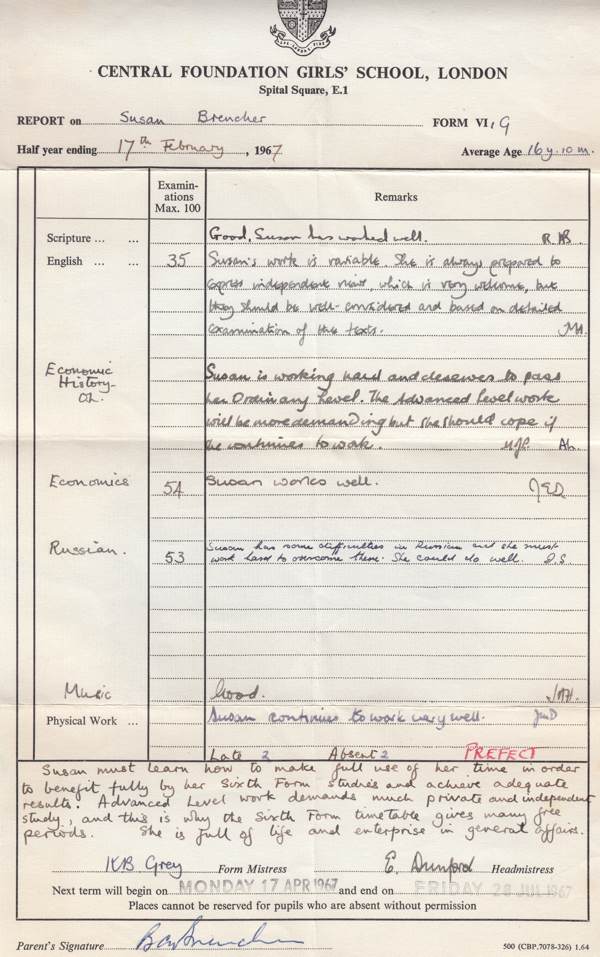 CENTRAL FOUNDATION GIRLS' SCHOOL, LONDON
Spital Square, E.1
REPORT on Susan Brencher FORM VI, G
Half year ending 17th February, 1967 Average Age 16 y. 10 m.
Examin-
ations
Max. 100
Remarks
Scripture ... ... Good, Susan has worked well. R.
English ... ... 35 Susan's work is variable. She is always prepared to
express independent views, which is very welcome, but
they should be well-considered and based on detailed
examination of the texts.
Economic
History
O.L.
Susan is working hard and deserves to pass
her Ordinary Level. The Advanced Level work
will be more demanding but she should cope if
she continues to work.
Economics 54 Susan works well.
Russian. 53 Susan has some difficulties in Russian and she must
work hard to overcome them. She could do well. I.S
Music Good.
Physical Work ... Susan continues to work very well.
Late 2 Absent 2 PREFECT
Susan must learn how to make full use of her time in order
to benefit fully by her Sixth Form studies and achieve adequate
results. Advanced Level work demands much private and independent
study, and this is why the Sixth Form timetable gives many free
periods. She is full of life and enterprise in general affairs.
KB Grey Form Mistress E. Dunford Headmistress
Next term will begin on MONDAY 17 APR 1967 and end on FRIDAY 28 JUL 1967
Places cannot be reserved for pupils who are absent without permission
Parent's Signature 500 (CBP.7078-326) 1.64